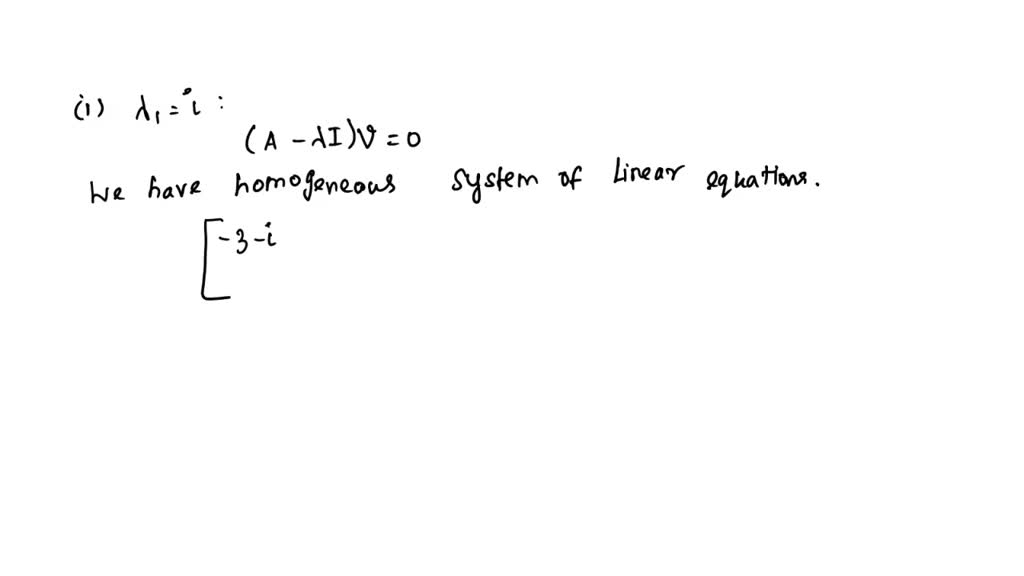 (i) λ₁ = i :
(A - λI)V = 0
We have homogeneous system of Linear equations.
[ -3-i